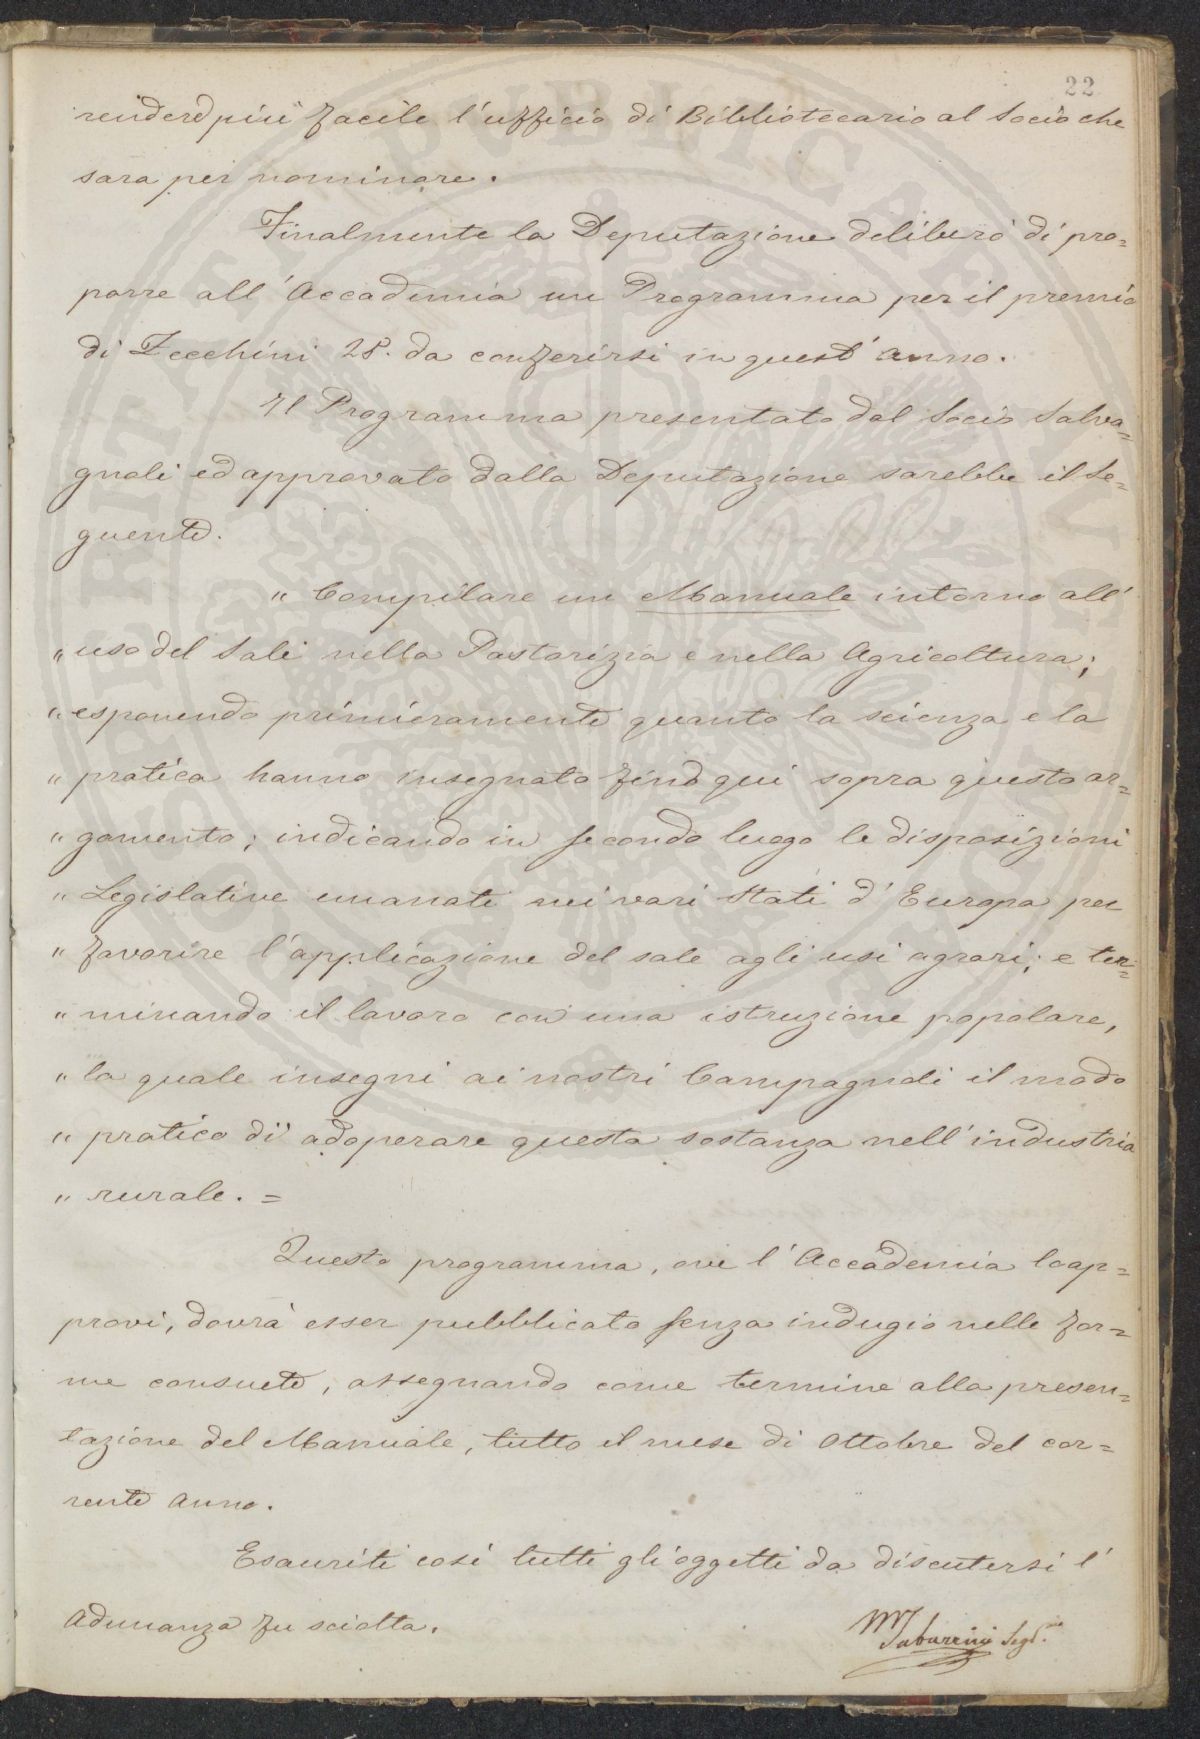 22
rendere più facile l'ufficio di Bibliotecario al Socio che
sara per nominare.
Finalmente la Deputazione deliberò di pro=
porre all'Accademia un Programma per il premio
di Zecchini 28. da conferirsi in quest'anno.
Il Programma presentato dal Socio Salva=
gnoli ed approvato dalla Deputazione sarebbe il Se=
guente.
" Compilare un Manuale intorno all'
" uso del Sali nella Pastorizia e nella Agricoltura;
" esponendo primieramente quanto la scienza e la
" pratica hanno insegnato fino qui sopra questo ar=
" gomento; indicando in secondo luogo le disposizioni
" Legislative emanate nei vari Stati d'Europa per
" favorire l'applicazione del sale agli usi agrari; e ter=
" minando il lavoro con una istruzione popolare,
" la quale insegni ai nostri Campagnoli il modo
" pratico di adoperare questa sostanza nell'industria
" rurale. =
Questo programma, ove l'Accademia lo ap=
provi, dovrà esser pubblicato senza indugio nelle for=
me consuete, assegnando come termine alla presen=
tazione del Manuale, tutto il mese di Ottobre del cor=
rente Anno.
Esauriti così tutti gli oggetti da discutersi l'
Adunanza fu sciolta.
M Tabarrini Seg.
PUBLICAE
PROSPERITATI
AUGENDAE